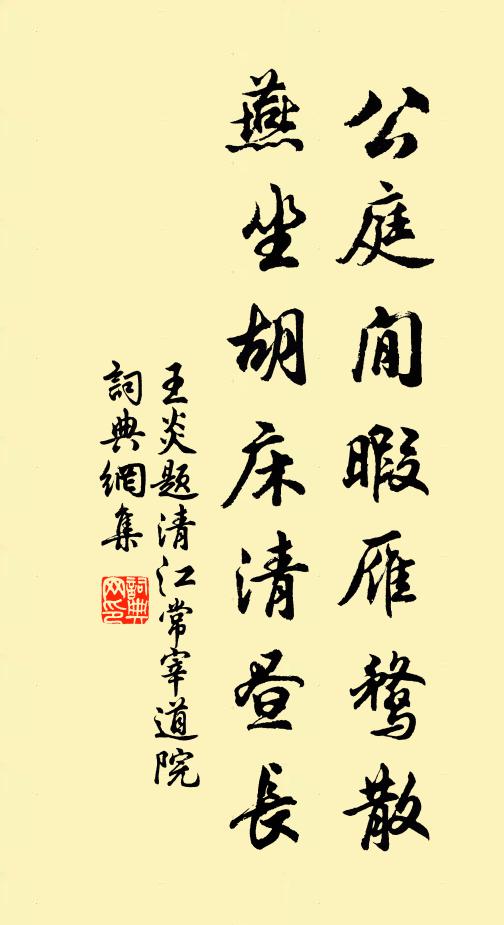 公庭閒暇雁鶩散
燕坐胡床清昼長
王炎题清江常宰道院
詞典網集
詞典网印